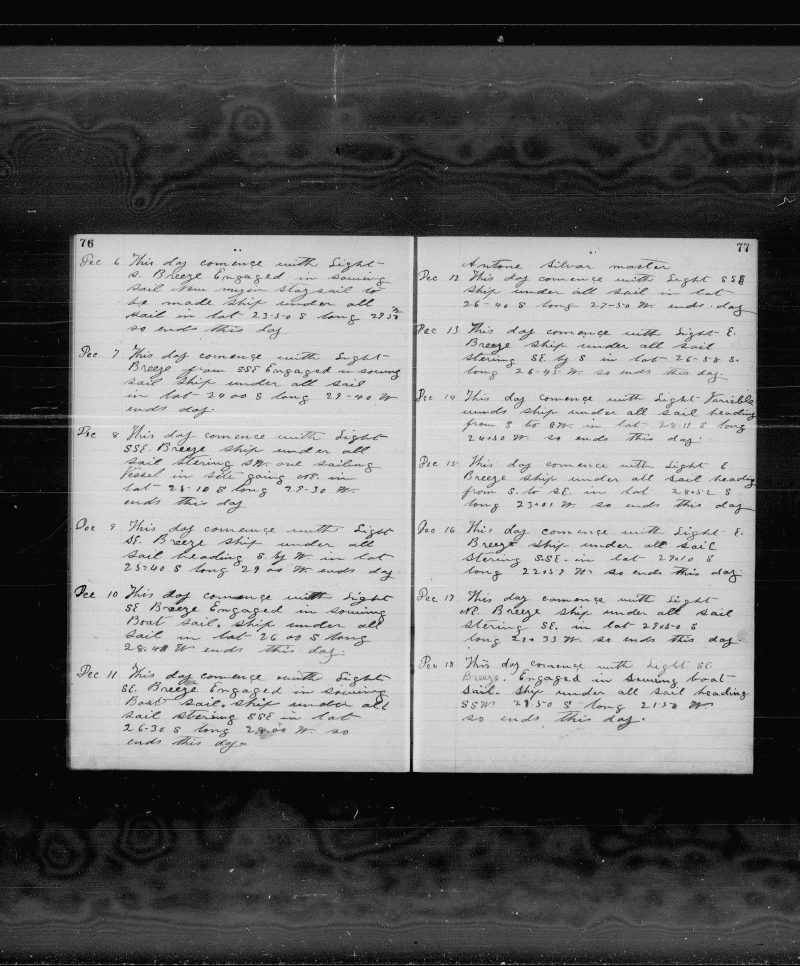 76
Dec 6 This day comence with Light
S. Breeze Engaged in sowing
sail New mizin stay sail to
be made ship under all
sail in lat 23-50 S long 29 50 W
so ends this day
Dec 7 This day comence with Light
Breeze from SSE Engaged in sowing
sail ship under all sail
in lat 24 00 S long 29-40 W
ends day.
Dec 8 This day comence with Light
SSE. Breeze ship under all
sail stering SW. one sailing
Vessel in site going NE. in
lat 25-10 S long 29-30 W.
ends this day
Dec 9 This day comence with Light
SE. Breeze ship under all
sail heading S. by W. in lat
25-40 S long 29 00 W ends day
Dec 10 This day comence with Light
SE Breeze Engaged in sowing
Boat sail. ship under all
sail in lat 26 00 S long
28.48 W ends this day.
Dec 11 This day comence with Light
SE. Breeze Engaged in sowing
Boat sail. ship under all
sail stering SSE in lat
26-30 S long W. so
ends this day.
77
Antone Silvar master
Dec 12 This day comence with Light SSE
ship under all sail in lat
26-40 S long 27-50 W. ends day
Dec 13 This day comence with Light E.
Breeze ship under all sail
stering SE by S in lat 26-58 S.
long 26-45 W. so ends this day.
Dec 14 This day comence with Light Variable
winds ship under all sail heading
from S to SW. in lat 28-11 S long
24-30 W. so ends this day.
Dec 15 This day comence with Light E
Breeze ship under all sail heading
from S. to SE. in lat 28-52 S
long 23-01 W. so ends this day
Dec 16 This day comence with Light E.
Breeze ship under all sail
stering SSE. in lat 29-10 S
long 22-57 W so ends this day.
Dec 17 This day comence with Light
NE. Breeze ship under all sail
stering SE. in lat 29-50 S
long 21-33 W. so ends this day.
Dec 18 This day comence with Light SE.
Breeze. Engaged in sowing boat
sail. ship under all sail heading
SSW 29.50 S long 21.50 W
so ends this day.